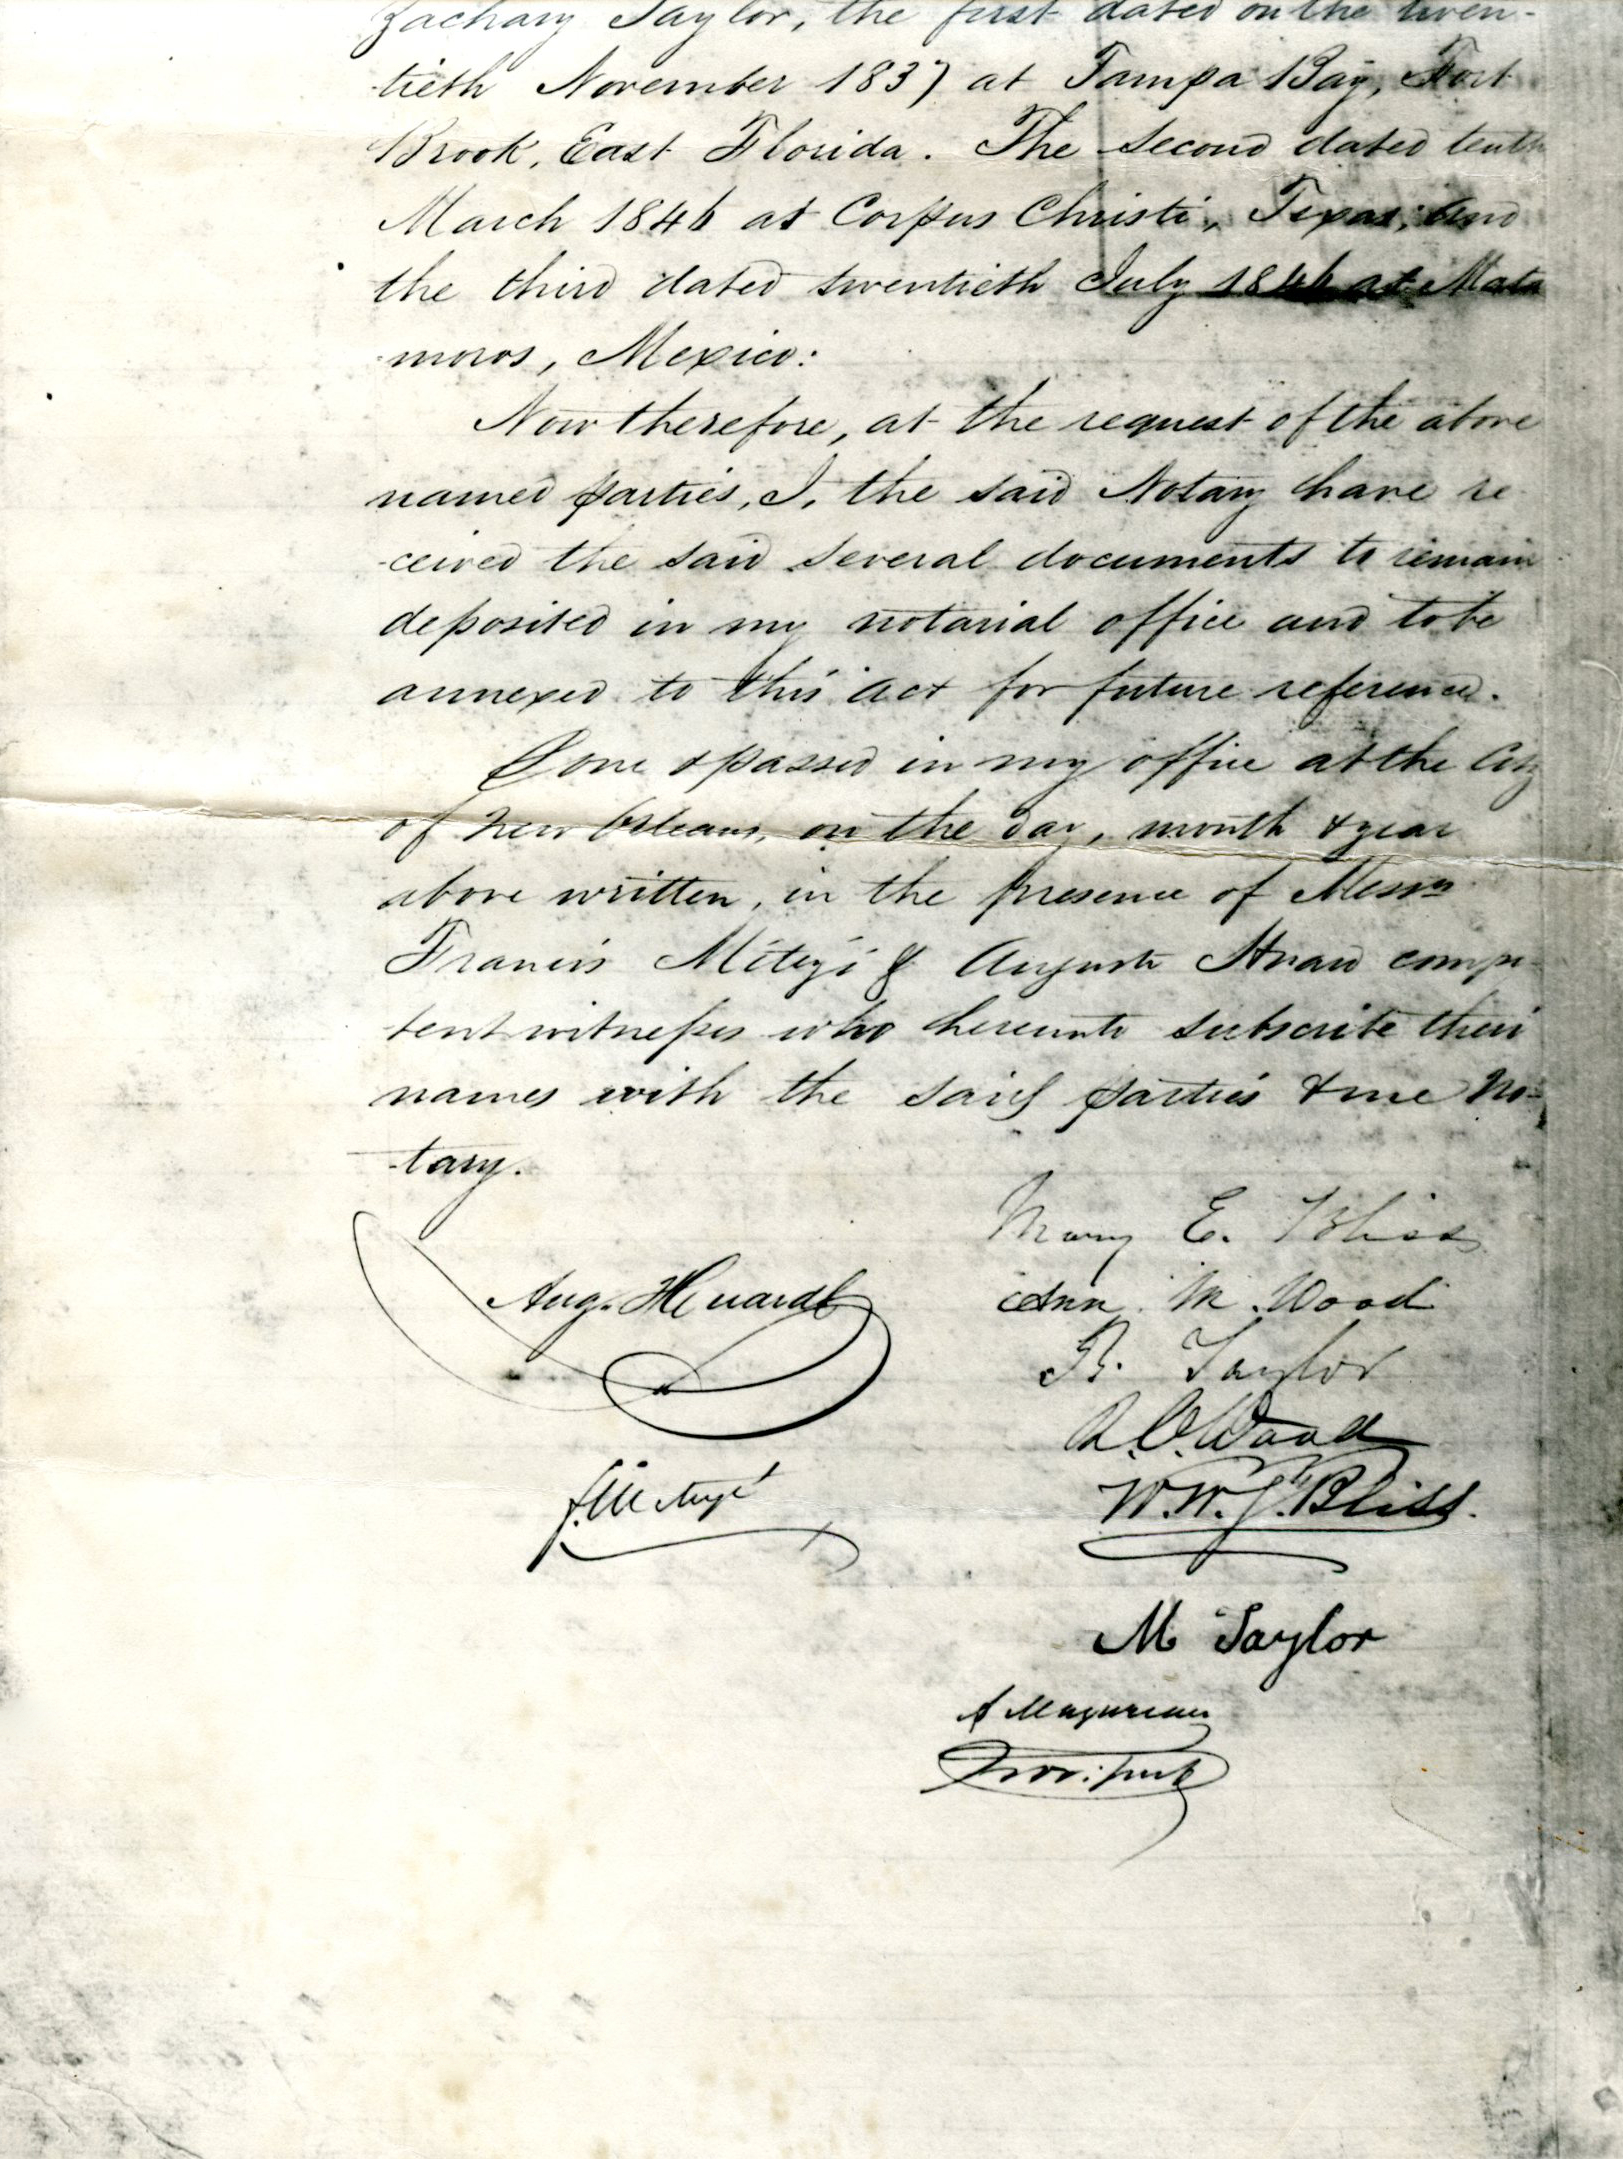 Zachary Taylor, the first dated on the twen-
tieth November 1837 at Tampa Bay, Fort
Brook, East Florida. The second dated tenth
March 1846 at Corpus Christi, Texas; and
the third dated twentieth July 1846 at Mata
-moros, Mexico:
Now therefore, at the request of the above
named parties, I, the said Notary have re-
-ceived the said several documents to remain
deposited in my notarial office and to be
annexed to this act for future reference.
Done & passed in my office at the City
of New Orleans, on the day, month & year
above written, in the presence of Messrs
Francis Mitegé & Auguste compe-
tent witnesses who hereunto subscribe their
names with the said parties & me No-
-tary.
Mary E. Bliss
Aug. Henardt
Ann M. Wood
R. Taylor
R. C. Wood
W. W. S. Bliss.
M Taylor
A Mazureau